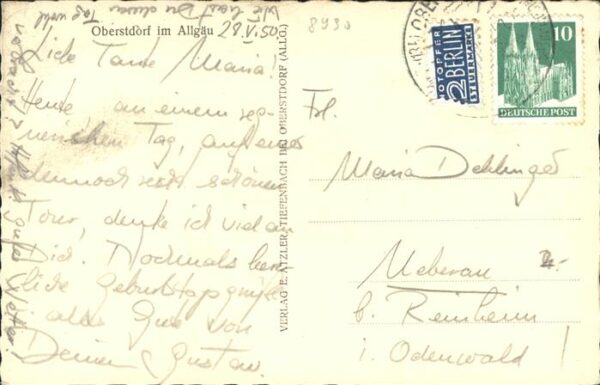 Oberstdorf im Allgäu
28.V.50
8930
Liebe Tante Maria!
Heute an einem reg-
nerischen Tag, auf einer
dennoch recht schönen
Tour, denke ich viel an
Dich. Nochmals herz-
liche Geburtstagsgrüße
u. alles Gute von
Deinem Gustav.
Wie hast Du diesen
Tag wohl
verbracht? gutes Wetter!
VERLAG E. ATZLER, TIEFENBACH BEI OBERSTDORF (ALLG.)
NOTOPFER
2 BERLIN
STEUERMARKE
10
DEUTSCHE POST
Frl.
Maria Dehlinger
Ueberau
b. Reinheim
i. Odenwald!